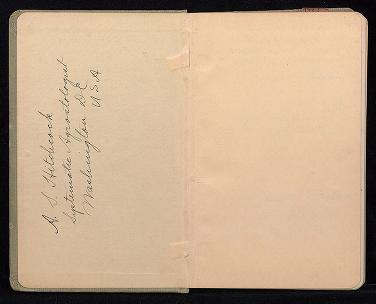 A. S. Hitchcock
Systematic Agrostologist
Washington D C
U S A